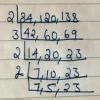 2 84, 120, 138
3 42, 60, 69
2 14, 20, 23
2 7, 10, 23
7, 5, 23